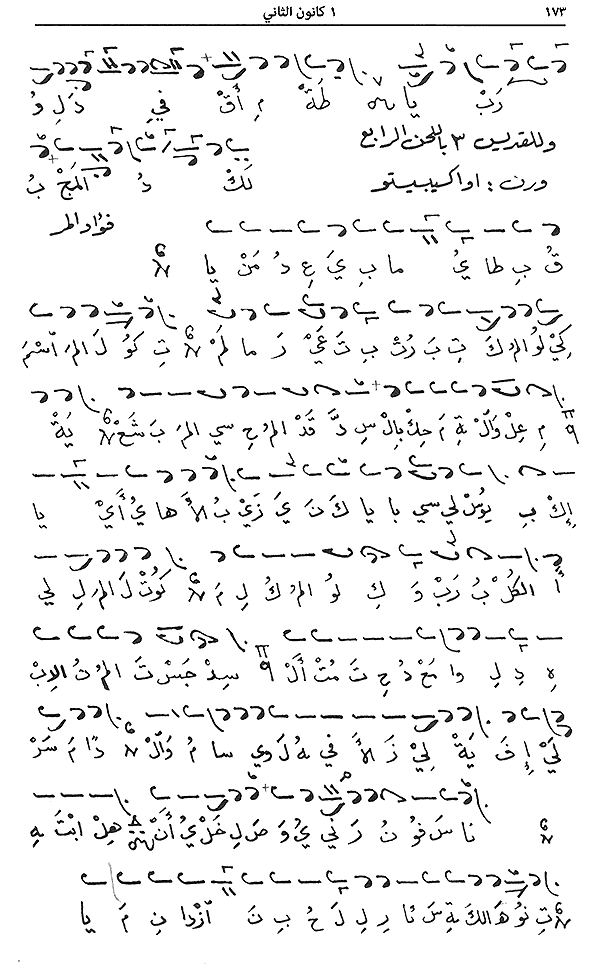 ١٧٣ ١ كانون الثاني
رَبْ يا طَةْ مِ أَقْ في ذَ لِ وُ
وللقديس ٣ باللحن الرابع
لَكْ دُ المَجْ بُ
وزن : او اكسيبيستو
فؤاد المر
قُ بِ طا يُ ما بِ يَ عِ دُ مَنْ يا
كَيْ لُو المُ كَ تِ بَ رُتْ بِ تَ غَيْ رَ ما لَمْ تِ كو لَ المَ اسْمَ
مِ عِلْ وَالْ ةِ مَ حِكْ بِالْ سِ دَّ قَدْ المُ حِ سي المَ بَ شَعْ يَةْ
إِكْ بِ يوسْ لي سي با يا كَ نَ يَ زَيْ بُ الأَ ها يُ أَيْ يا
أَ الكُلْ بُ رَبْ وَ كِ لُو المُ كُ لِ مَ كوتْ لَ المَ لِ لي
هِ دِ لِ وا مَعْ دُ حِ تَ مُتْ أَلْ سِدْ جَسْ تَ المُ تُ الاِبْ
لَيْ إِ خَ يَةْ لِيْ زَ الأَ في هُ لَ وي سا مُ وَالْ دًا مَ سَرْ
ناسَ فو نُ رَ ني يُ وَ صَ لِ خَلْ يُ أَنْ هِلْ ابْتَ هِ
تِ نو هَا لَكَ ةِ سَ نا رِ لِ لَ حُ بِ نَ ازْدا نِ مَ يا